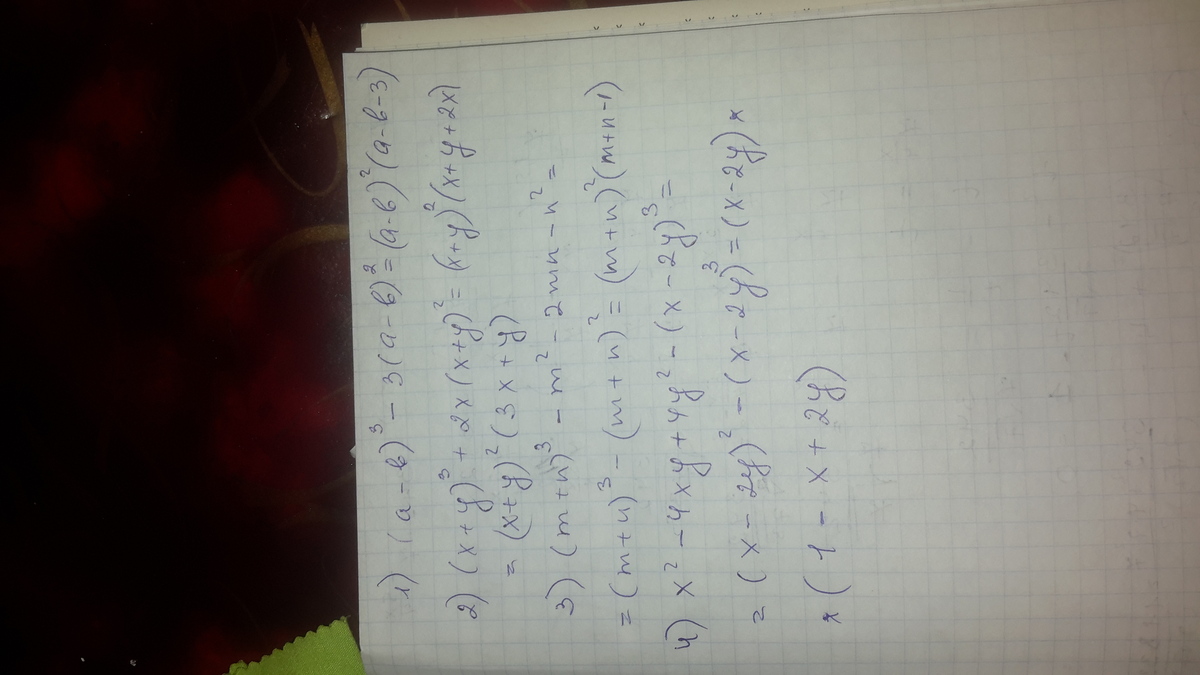 1) (a-b)³-3(a-b)²=(a-b)²(a-b-3)
2) (x+y)³+2x(x+y)²=(x+y)²(x+y+2x)
=(x+y)²(3x+y)
3) (m+n)³-m²-2mn-n²=
=(m+n)³-(m+n)²=(m+n)²(m+n-1)
4) x²-4xy+4y²-(x-2y)³=
=(x-2y)²-(x-2y)³=(x-2y)*
*(1-x+2y)